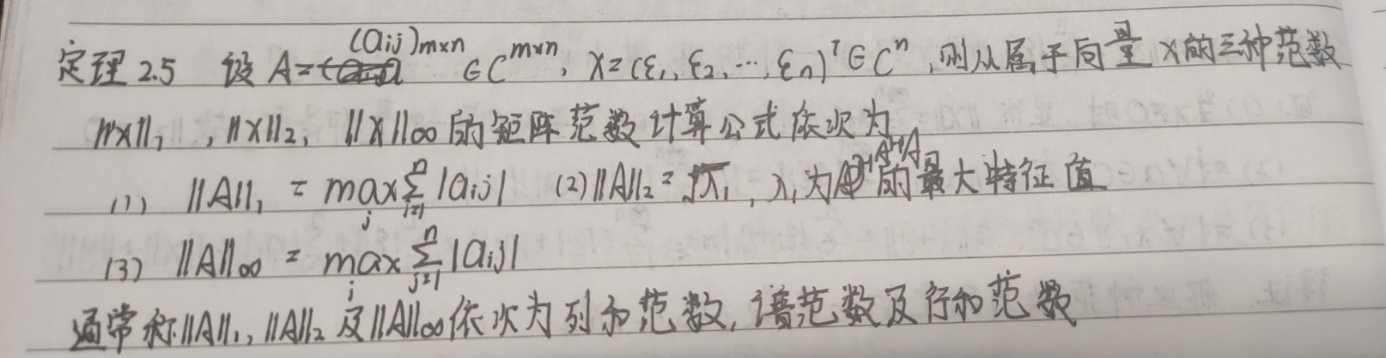 定理2.5 设A=(aij)m×n ∈C^{m×n}, X=(ξ₁,ξ₂,…,ξn)^T∈C^n,则从属于向量X的三种范数
||X||₁,||X||₂,||X||∞的矩阵范数计算公式依次为
(1) ||A||₁ = max_j Σ_{i=1}^n |aij| (2)||A||₂=√λ₁, λ₁为A^HA的最大特征值
(3) ||A||∞ = max_i Σ_{j=1}^n |aij|
通常称||A||₁,||A||₂及||A||∞依次为列和范数,谱范数及行和范数